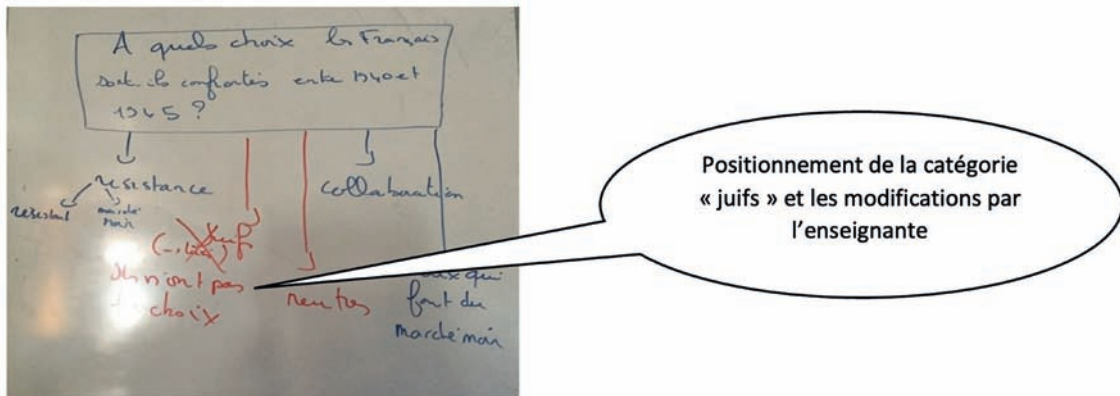 A quels choix les Français
sont-ils confrontés entre 1940 et
1945 ?
resistance
collaboration
resistant
marché
noir
juif
ils n'ont pas
choix
neutres
qui
font du
marché noir
Positionnement de la catégorie
« juifs » et les modifications par
l'enseignante